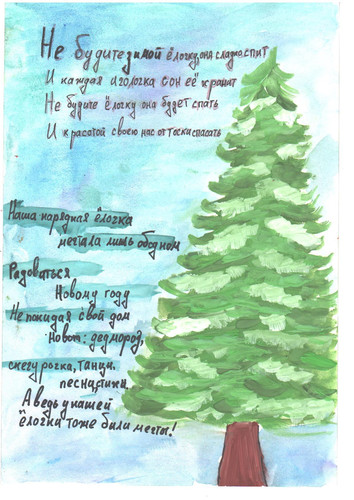 Не будите зимой ёлочку, она сладко спит
И каждая иголочка сон её хранит
Не будите ёлочку она будет спать
И красотой своею нас от тоски спасать
Наша нарядная ёлочка
мечтала лишь об одном
Радоваться
Новому году
Не покидая свой дом
дедмород,
снегурочка, танцы.
песни, стихи.
А ведь у нашей
ёлочки тоже были мечты!